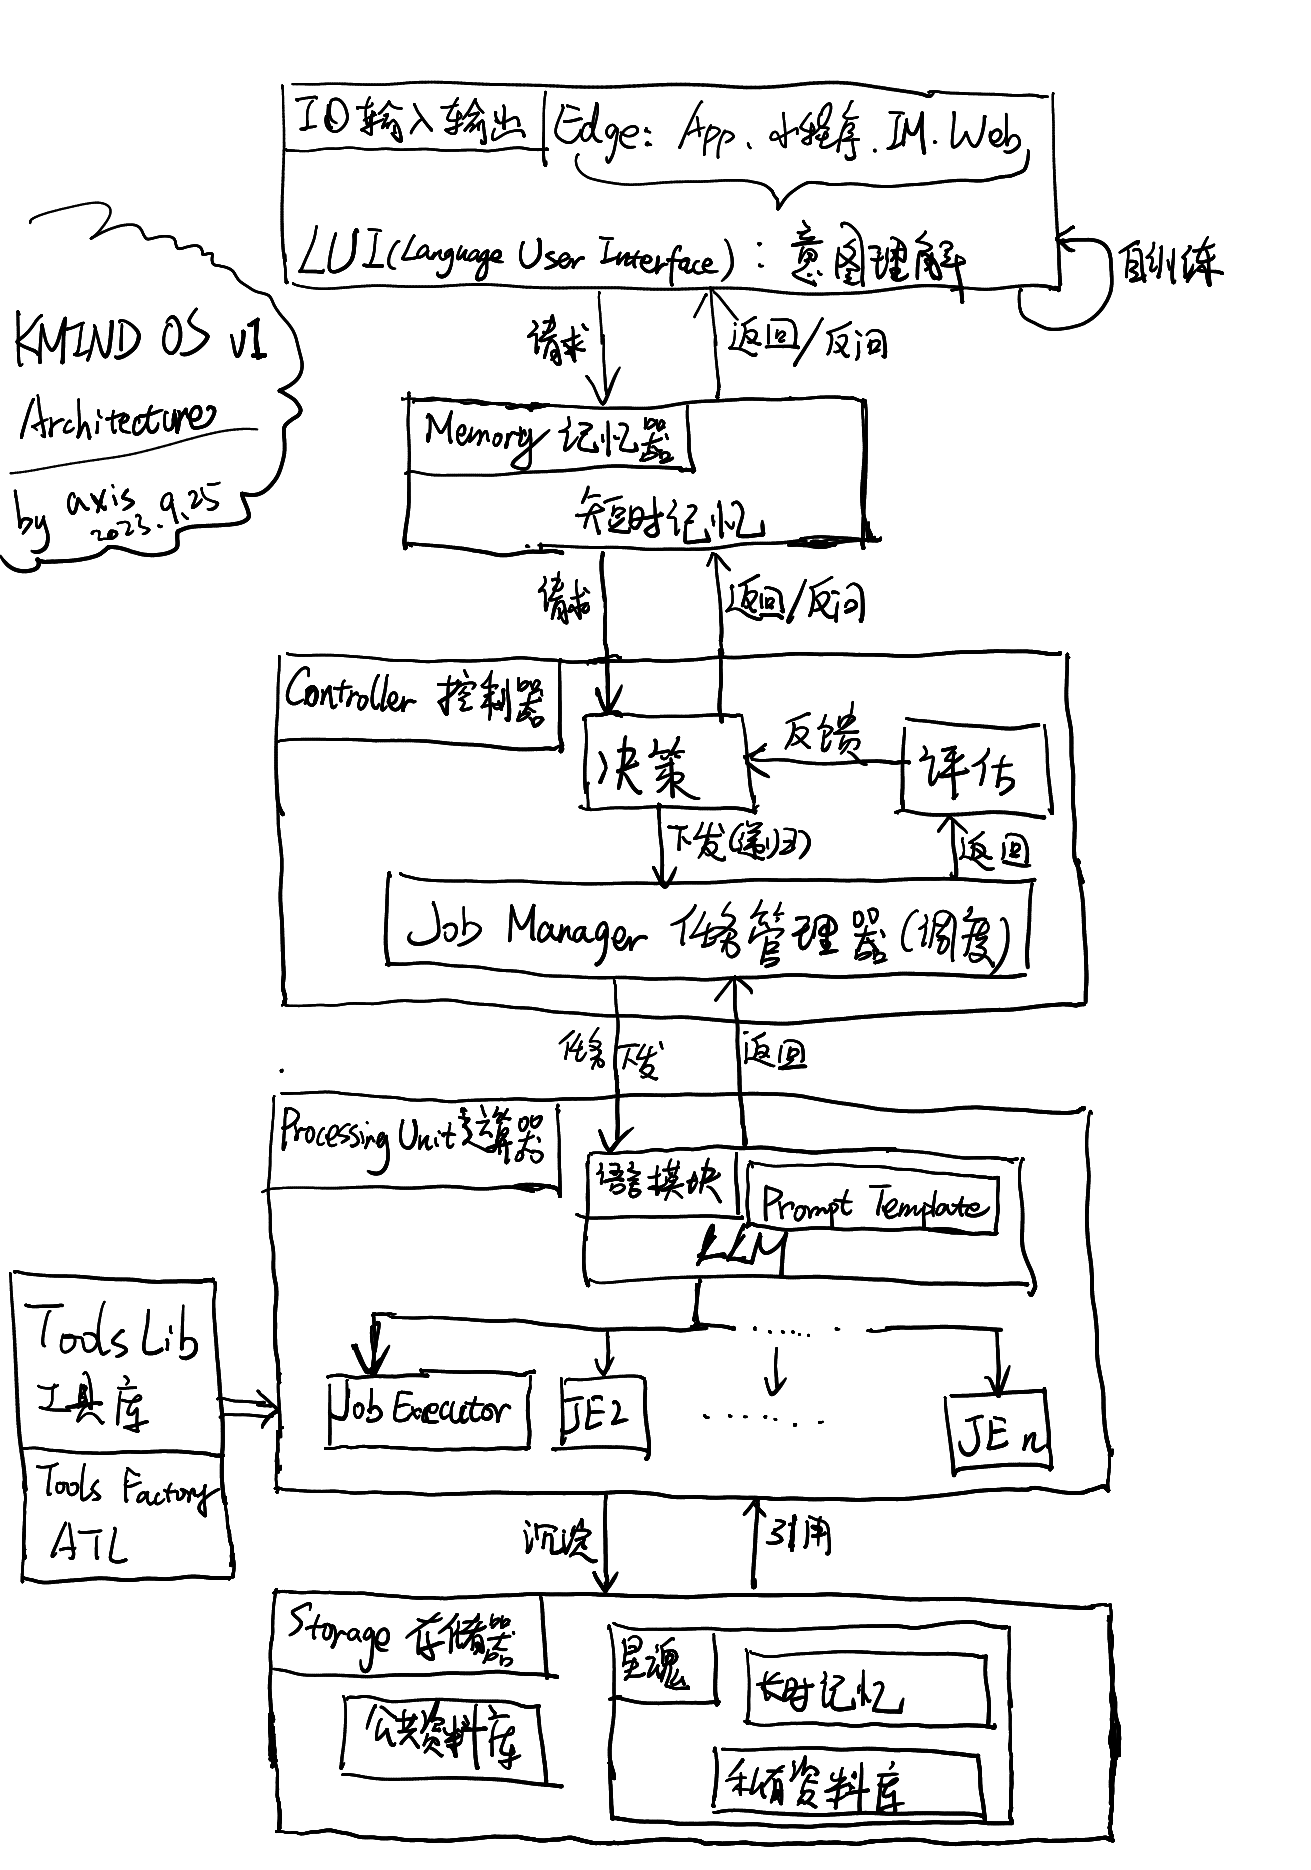 IO 输入输出
Edge: App、小程序.IM.Web
LUI(Language User Interface): 意图理解
自训练
KMIND OS v1
Architecture
by axis
2023.9.25
请求
返回/反问
Memory 记忆器
短时记忆
请求
返回/反问
Controller 控制器
决策
反馈
评估
下发(递归)
返回
Job Manager 任务管理器(调度)
任务下发
返回
Processing Unit 运算器
语言模块
Prompt Template
LLM
Tools Lib
工具库
Tools Factory
ATL
Job Executor
JE2
......
......
JE n
沉淀
引用
Storage 存储器
公共资料库
星魂
长时记忆
私有资料库